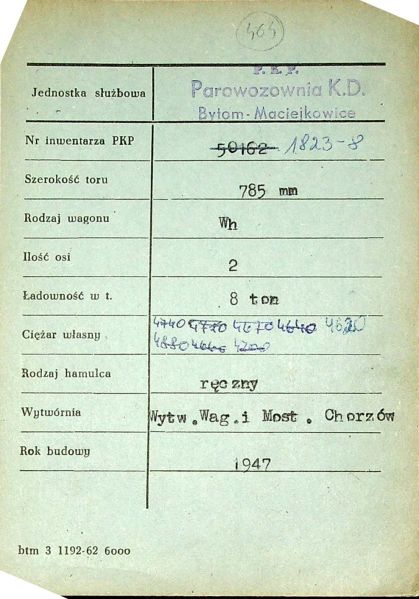 464
P.K.P.
Jednostka służbowa Parowozownia K.D.
Bytom-Maciejkowice
Nr inwentarza PKP 50162 1823-8
Szerokość toru 785 mm
Rodzaj wagonu Wh
Ilość osi 2
Ładowność w t. 8 ton
Ciężar własny 4740 4770 4670 4640
4880
Rodzaj hamulca ręczny
Wytwórnia Wytw.Wag.i Most. Chorzów
Rok budowy 1947
btm 3 1192-62 6000